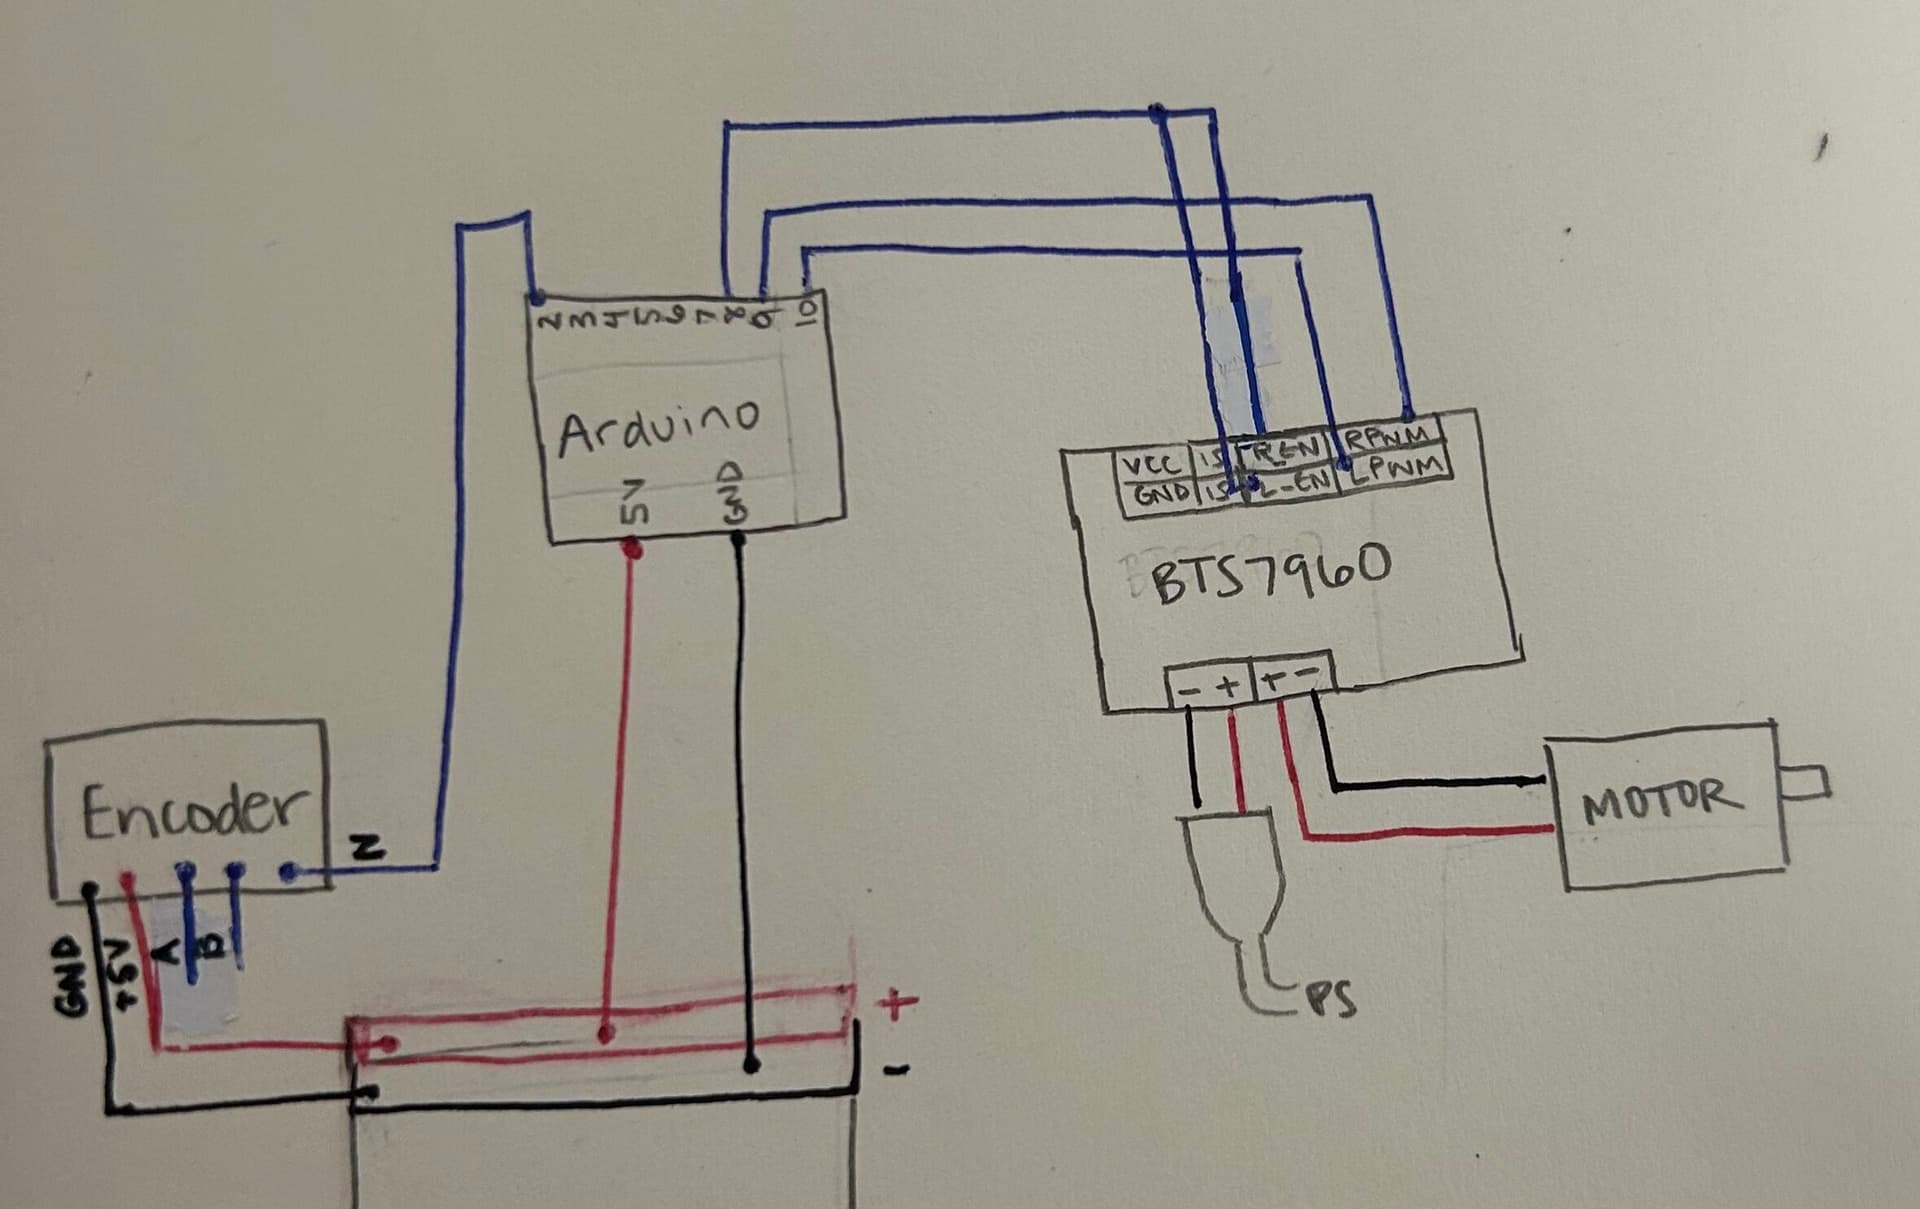 2 3 4 5 6 7 8 9 10
Arduino
5V GND
VCC IS R-EN RPWM
GND IS L-EN LPWM
BTS7960
- + + -
MOTOR
PS
Encoder
Z
GND +5V A B
+
-